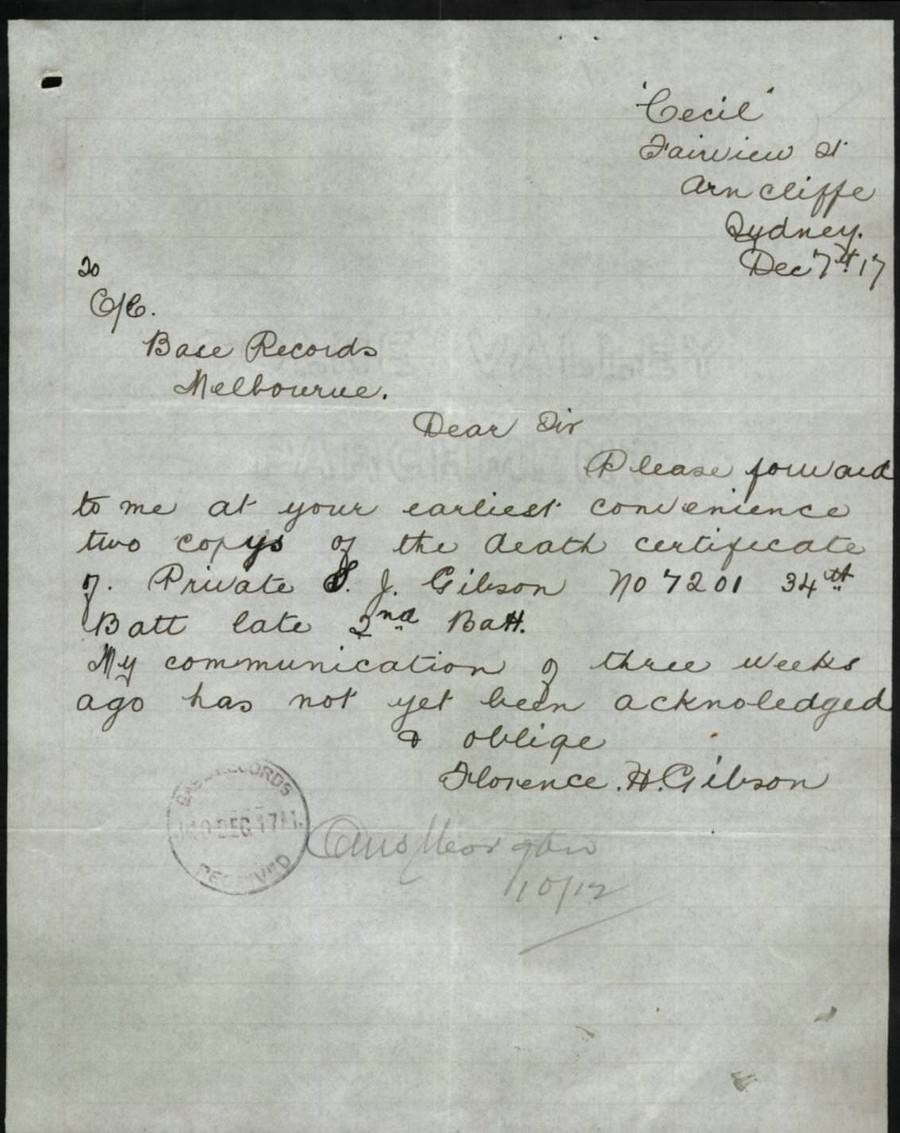 "Cecil"
Fairview St
Arncliffe
Sydney.
Dec 7th 17
To
O/C.
Base Records
Melbourne.
Dear Sir
Please forward
to me at your earliest convenience
two copys of the death certificate
of. Private S. J. Gibson No 7201 34th
Batt late 2nd Batt.
My communication of three weeks
ago has not yet been acknoledged
& oblige
Florence. H. Gibson
BASE RECORDS
10 DEC 17
RECEIVED
10/12